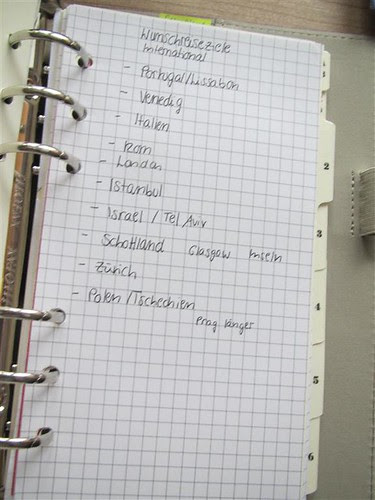 Wunschreiseziele
International
- Portugal/Lissabon
- Venedig
- Italien
- Rom
- London
- Istanbul
- Israel / Tel Aviv
- Schottland Glasgow Inseln
- Zürich
- Polen /Tschechien
Prag länger
2
3
4
5
6